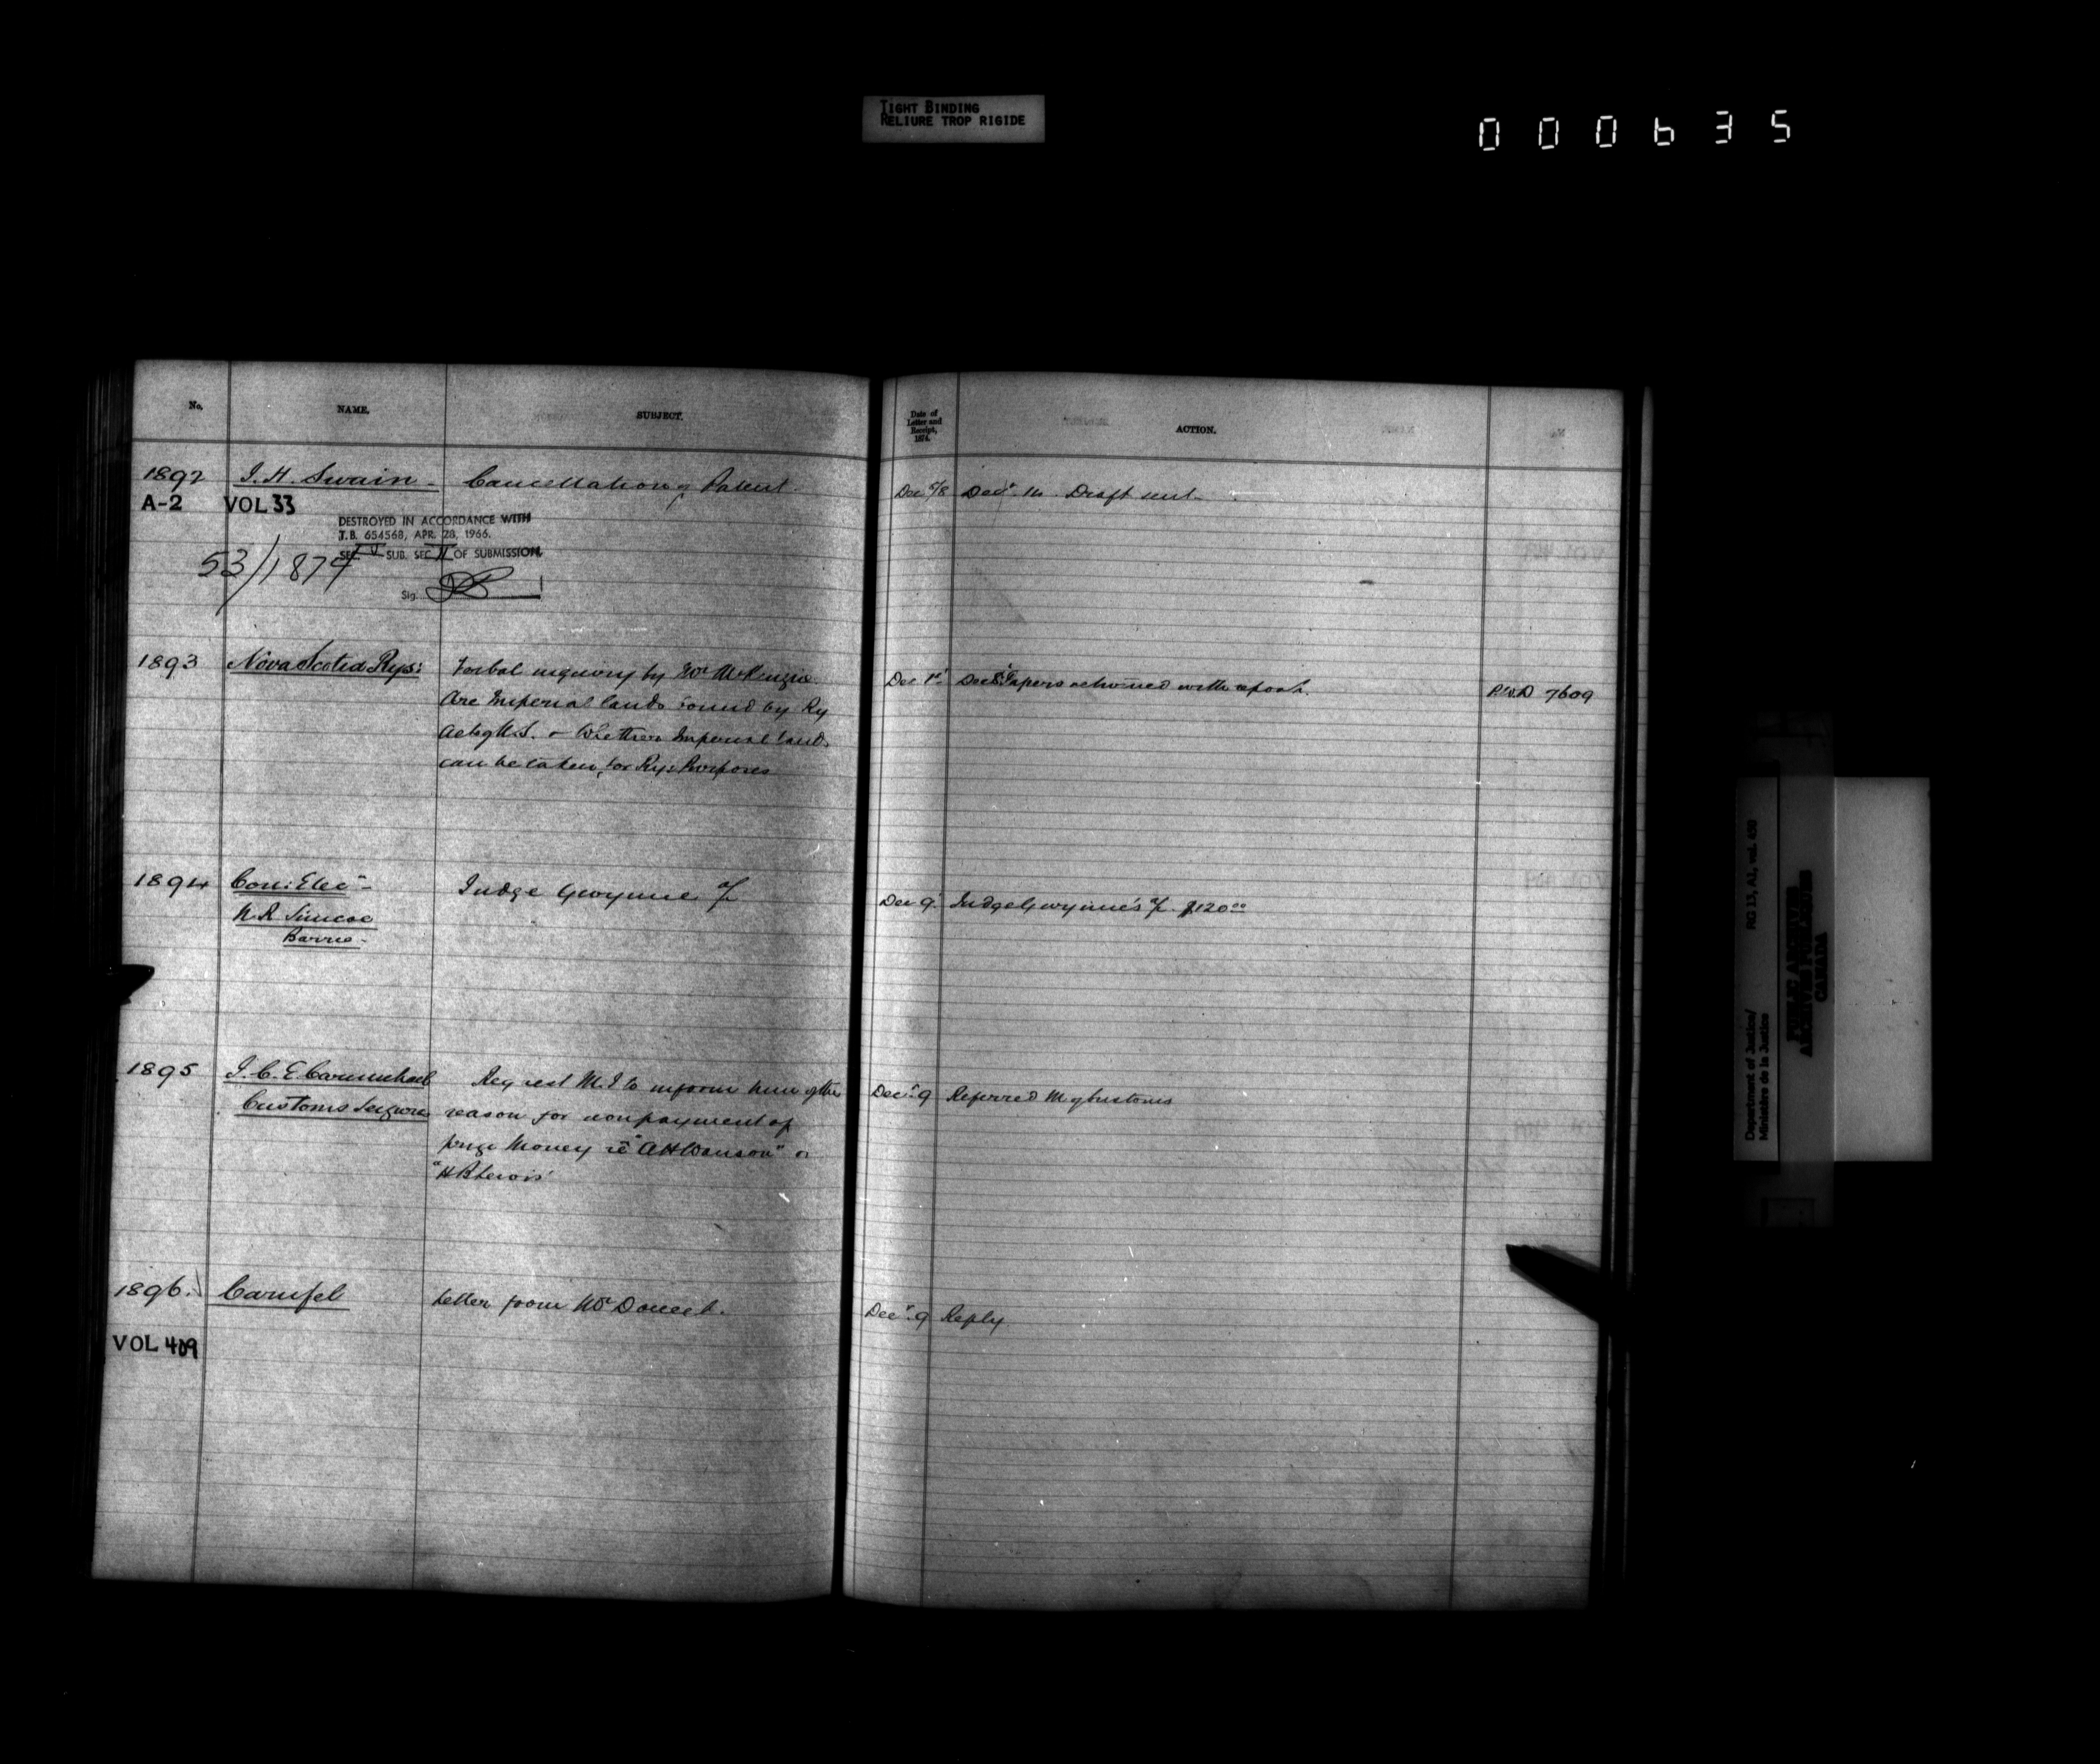 TIGHT BINDING
RELIURE TROP RIGIDE
000635
No. NAME. SUBJECT.
Date of Letter and Receipt, 1874. ACTION.
1892 J. H. Swain - Cancellation of Patent. Dec 5/8 Decr 14. Draft sent
A-2 VOL 33
DESTROYED IN ACCORDANCE WITH
T.B. 654568, APR. 28, 1966.
SEC. V SUB. SEC II OF SUBMISSION.
53/1879
Sig.
1893 Nova Scotia Rys: Verbal inquiry by Mr McKenzie Dec 1st Dec 8 Papers returned with report. P.W.D 7609
Are Imperial lands bound by Ry
Acts of N.S. & Whether Imperial lands
can be taken for Rys: Purposes
1894 Con: Elecn - Judge Gwynne a/c Dec 9 Judge Gwynne's a/c $120.00
N. R. Simcoe
Barrie -
1895 J. C. E. Carmichael Request M. J to inform him of the Decr 9 Referred M of Customs
Customs Seizure reason for nonpayment of
prize Money re "A H Wanson" or
"H B Lewis"
1896. Carufel Letter from Mr Doucet. Decr 9 Reply
VOL 409
Department of Justice/
Ministère de la Justice
RG 13, A2, vol. 450
PUBLIC ARCHIVES
ARCHIVES PUBLIQUES
CANADA